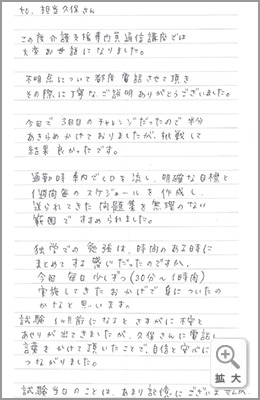 to. 担当久保さん
この度介護支援専門員通信講座では
大変お世話になりました。
不明点について都度電話させて頂き
その際に丁寧なご説明ありがとうございました。
今回で3回目のチャレンジだったので半分
あきらめかけておりましたが、挑戦して
結果良かったです。
通勤時車内でCDを流し、明確な目標と
1週間毎のスケジュールを作成し、
送られてきた問題集を無理のない
範囲ですすめられました。
独学での勉強は、時間のある時に
まとめてする感じだったのですが、
今回毎日少しずつ(30分〜1時間)
実施してきたおかげで身についたの
かなと思います。
試験1か月前になるとさすがに不安と
あせりが出てきましたが、久保さんに電話し
言葉をかけて頂いたことで、自信と安心に
つながりました。
試験当日のことは、あまり記憶にございませんが
拡大